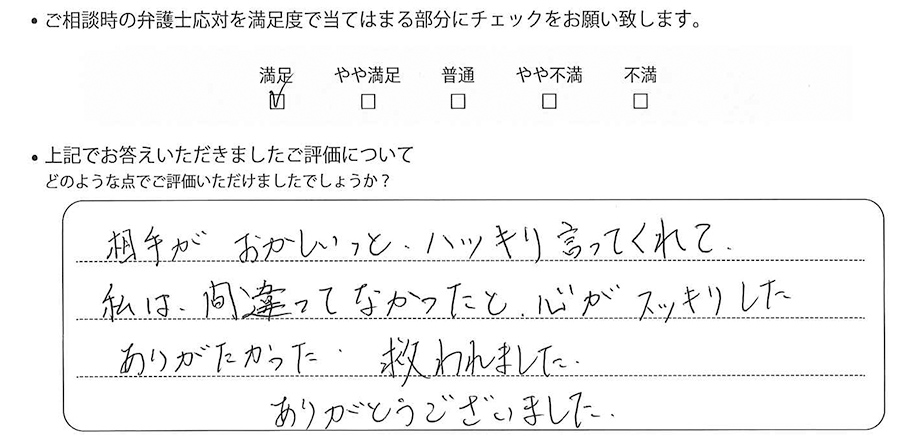 ・ご相談時の弁護士応対を満足度で当てはまる部分にチェックをお願い致します。
満足 やや満足 普通 やや不満 不満
☑ □ □ □ □
・上記でお答えいただきましたご評価について
どのような点でご評価いただけましたでしょうか?
相手が おかしいっと、ハッキリ言ってくれて、
私は、間違ってなかったと、心がスッキリした
ありがたかった 救われました。
ありがとうございました。